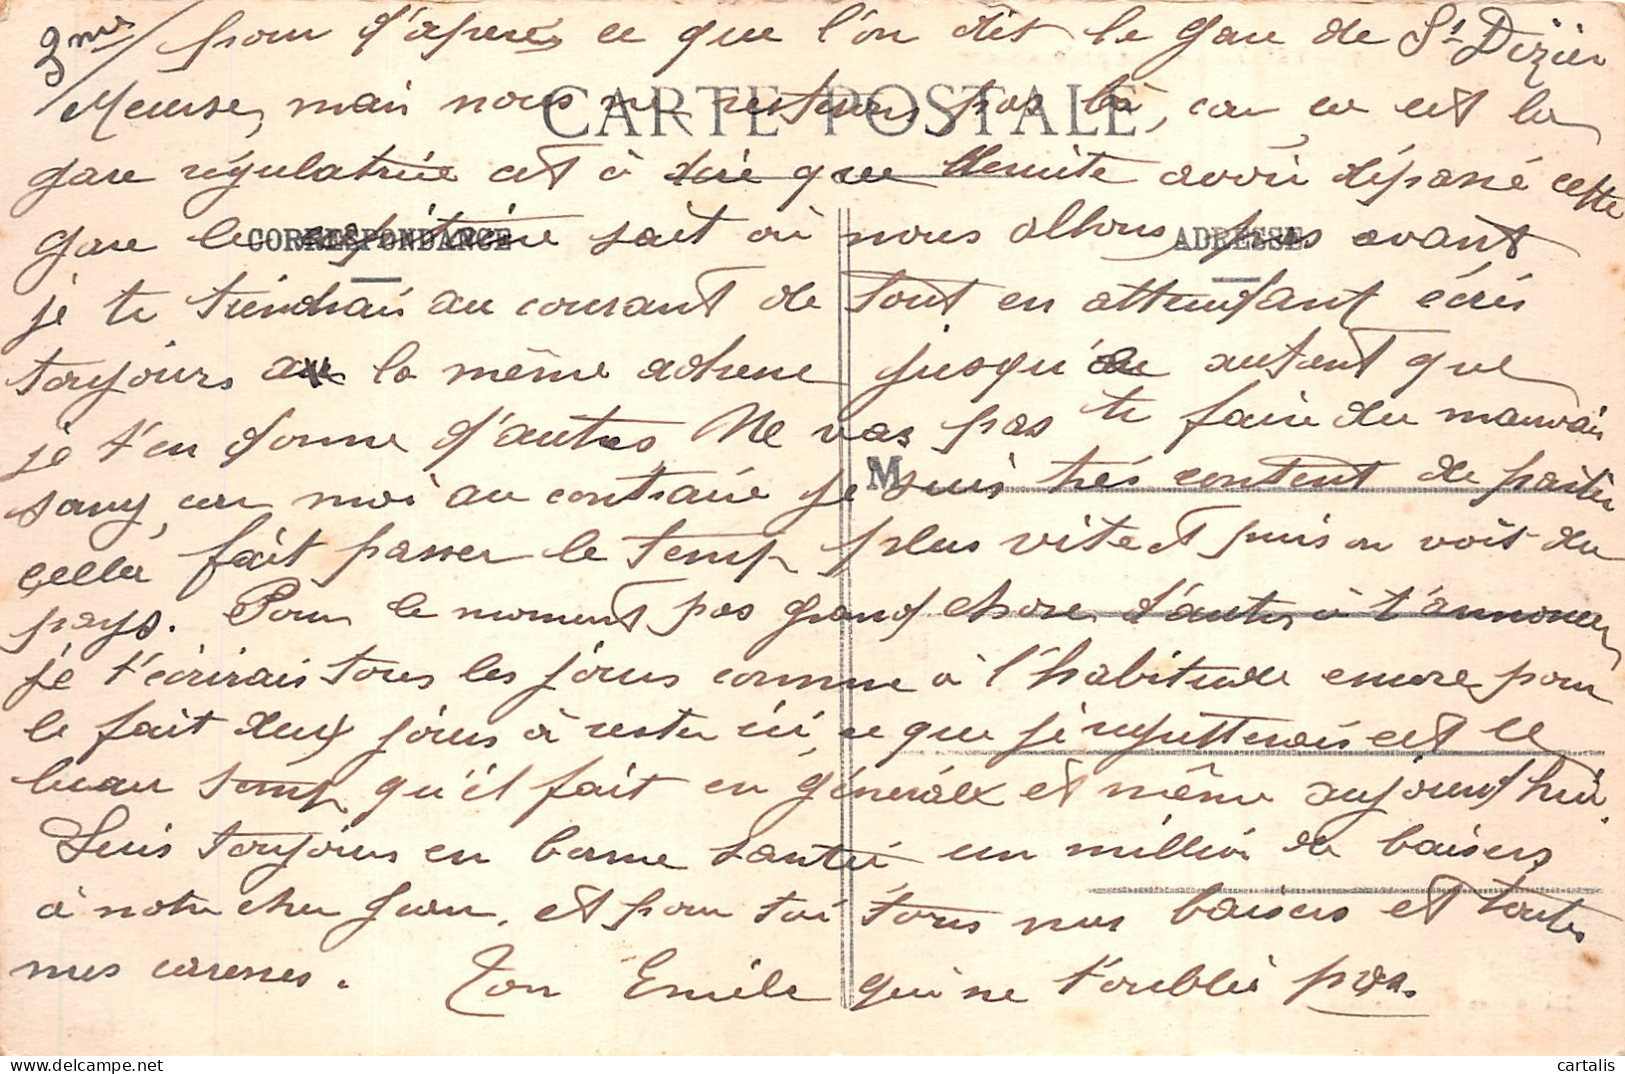 3me/ pour d'apres, ce que l'on dit la gare de St Dizier
CARTE POSTALE
Meurse, mais nous ne resterons pas là, car ça est la
gare régulatrice cet à dire que ensuite avoir dépassé cette
CORRESPONDANCE
ADRESSE
gare le capitaine sait où nous allons, pas avant
je te tiendrais au courant de tout en attendant écris
toujours a la même adresse jusqu'a autant que
je t'en donne d'autres, Ne vas pas te faire du mauvais
M
sang, car moi au contraire je suis très content de partir
cella fait passer le temp plus vite et puis on voit du
pays. Pour le moment pas grand chose d'autres à t'annoncer,
je t'écrirais tous les jours comme à l'habitude encore pour
le fait deux jours à rester ici, ce que je regretterais cet le
beau temp qu'il fait en général et même aujourd'hui.
Suis toujours en bonne santée un million de baisers
à notre cher Jean, et pour toi tous mes baisers et toutes
mes caresses. Ton Emile qui ne t'oublie pas.
cartalis